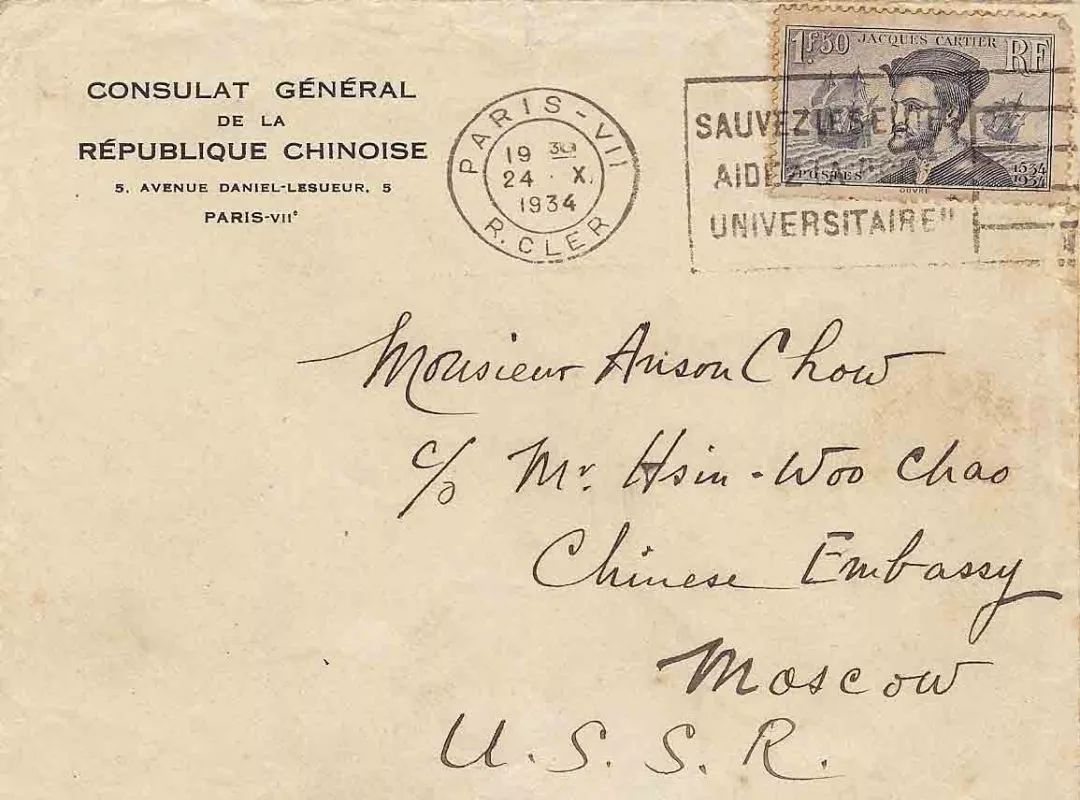 CONSULAT GÉNÉRAL
DE LA
RÉPUBLIQUE CHINOISE
5, AVENUE DANIEL-LESUEUR, 5
PARIS-VIIᵉ
PARIS-VII
19 30
24 · X.
1934
R. CLER
1f.50 JACQUES CARTIER RF
POSTES
1534
1934
SAUVEZ LES
UNIVERSITAIRE"
Monsieur Anson Chow
c/o Mr. Hsin-Woo Chao
Chinese Embassy
Moscow
U.S.S.R.